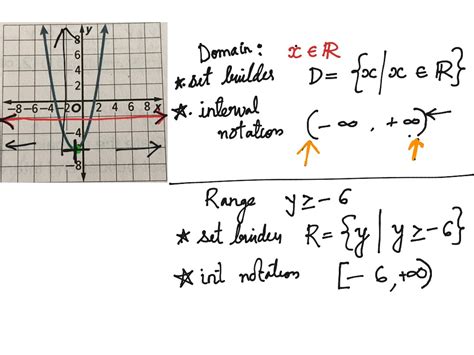 8 y
6
4
2
-8 -6 -4 -2 O 2 4 6 8 x
-4
-8
Domain: x ∈ ℝ
* set builder D = {x | x ∈ ℝ}
* interval notation (-∞, +∞)
Range y ≥ -6
* set builder R = {y | y ≥ -6}
* int notation [-6, +∞)